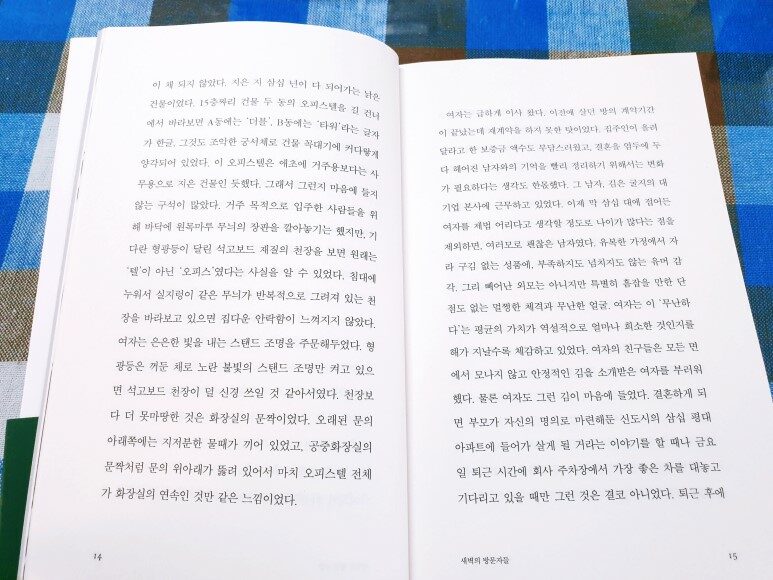 이 채 되지 않았다. 지은 지 삼십 년이 다 되어가는 낡은
건물이었다. 15층짜리 건물 두 동의 오피스텔을 길 건너
에서 바라보면 A동에는 '더블', B동에는 '타워'라는 글자
가 한글, 그것도 조악한 궁서체로 건물 꼭대기에 커다랗게
양각되어 있었다. 이 오피스텔은 애초에 거주용보다는 사
무용으로 지은 건물인 듯했다. 그래서 그런지 마음에 들지
않는 구석이 많았다. 거주 목적으로 입주한 사람들을 위
해 바닥에 원목마루 무늬의 장판을 깔아놓기는 했지만, 기
다란 형광등이 달린 석고보드 재질의 천장을 보면 원래는
'텔'이 아닌 '오피스'였다는 사실을 알 수 있었다. 침대에
누워서 실지렁이 같은 무늬가 반복적으로 그려져 있는 천
장을 바라보고 있으면 집다운 안락함이 느껴지지 않았다.
여자는 은은한 빛을 내는 스탠드 조명을 주문해두었다. 형
광등은 꺼둔 채로 노란 불빛의 스탠드 조명만 켜고 있으
면 석고보드 천장이 덜 신경 쓰일 것 같아서였다. 천장보
다 더 못마땅한 것은 화장실의 문짝이었다. 오래된 문의
아래쪽에는 지저분한 물때가 끼어 있었고, 공중화장실의
문짝처럼 문의 위아래가 뚫려 있어서 마치 오피스텔 전체
가 화장실의 연속인 것만 같은 느낌이었다.
14
여자는 급하게 이사 왔다. 이전에 살던 방의 계약기간
이 끝났는데 재계약을 하지 못한 탓이었다. 집주인이 올려
달라고 한 보증금 액수도 부담스러웠고, 결혼을 염두에 두
다 헤어진 남자와의 기억을 빨리 정리하기 위해서는 변화
가 필요하다는 생각도 한몫했다. 그 남자, 김은 굴지의 대
기업 본사에 근무하고 있었다. 이제 막 삼십 대에 접어든
여자를 제법 어리다고 생각할 정도로 나이가 많다는 점을
제외하면, 여러모로 괜찮은 남자였다. 유복한 가정에서 자
라 구김 없는 성품에, 부족하지도 넘치지도 않는 유머 감
각. 그리 빼어난 외모는 아니지만 특별히 흠잡을 만한 단
점도 없는 멀쩡한 체격과 무난한 얼굴. 여자는 이 '무난하
다'는 평균의 가치가 역설적으로 얼마나 희소한 것인지를
해가 지날수록 체감하고 있었다. 여자의 친구들은 모든 면
에서 모나지 않고 안정적인 김을 소개받은 여자를 부러워
했다. 물론 여자도 그런 김이 마음에 들었다. 결혼하게 되
면 부모가 자신의 명의로 마련해둔 신도시의 삼십 평대
아파트에 들어가 살게 될 거라는 이야기를 할 때나 금요
일 퇴근 시간에 회사 주차장에서 가장 좋은 차를 대놓고
기다리고 있을 때만 그런 것은 결코 아니었다. 퇴근 후에
새벽의 방문자들
15